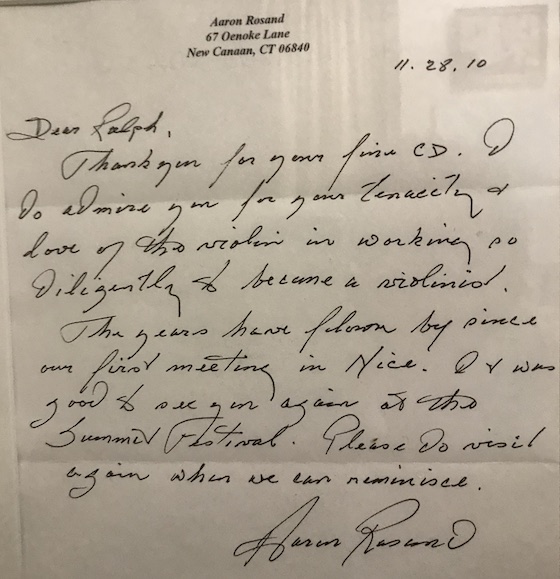 Aaron Rosand
67 Oenoke Lane
New Canaan, CT 06840
11.28.10
Dear Ralph,
Thank you for your fine CD. I
do admire you for your tenacity &
love of the violin in working so
diligently to become a violinist.
The years have flown by since
our first meeting in Nice. It was
good to see you again at the
Summit Festival. Please do visit
again when we can reminisce.
Aaron Rosand